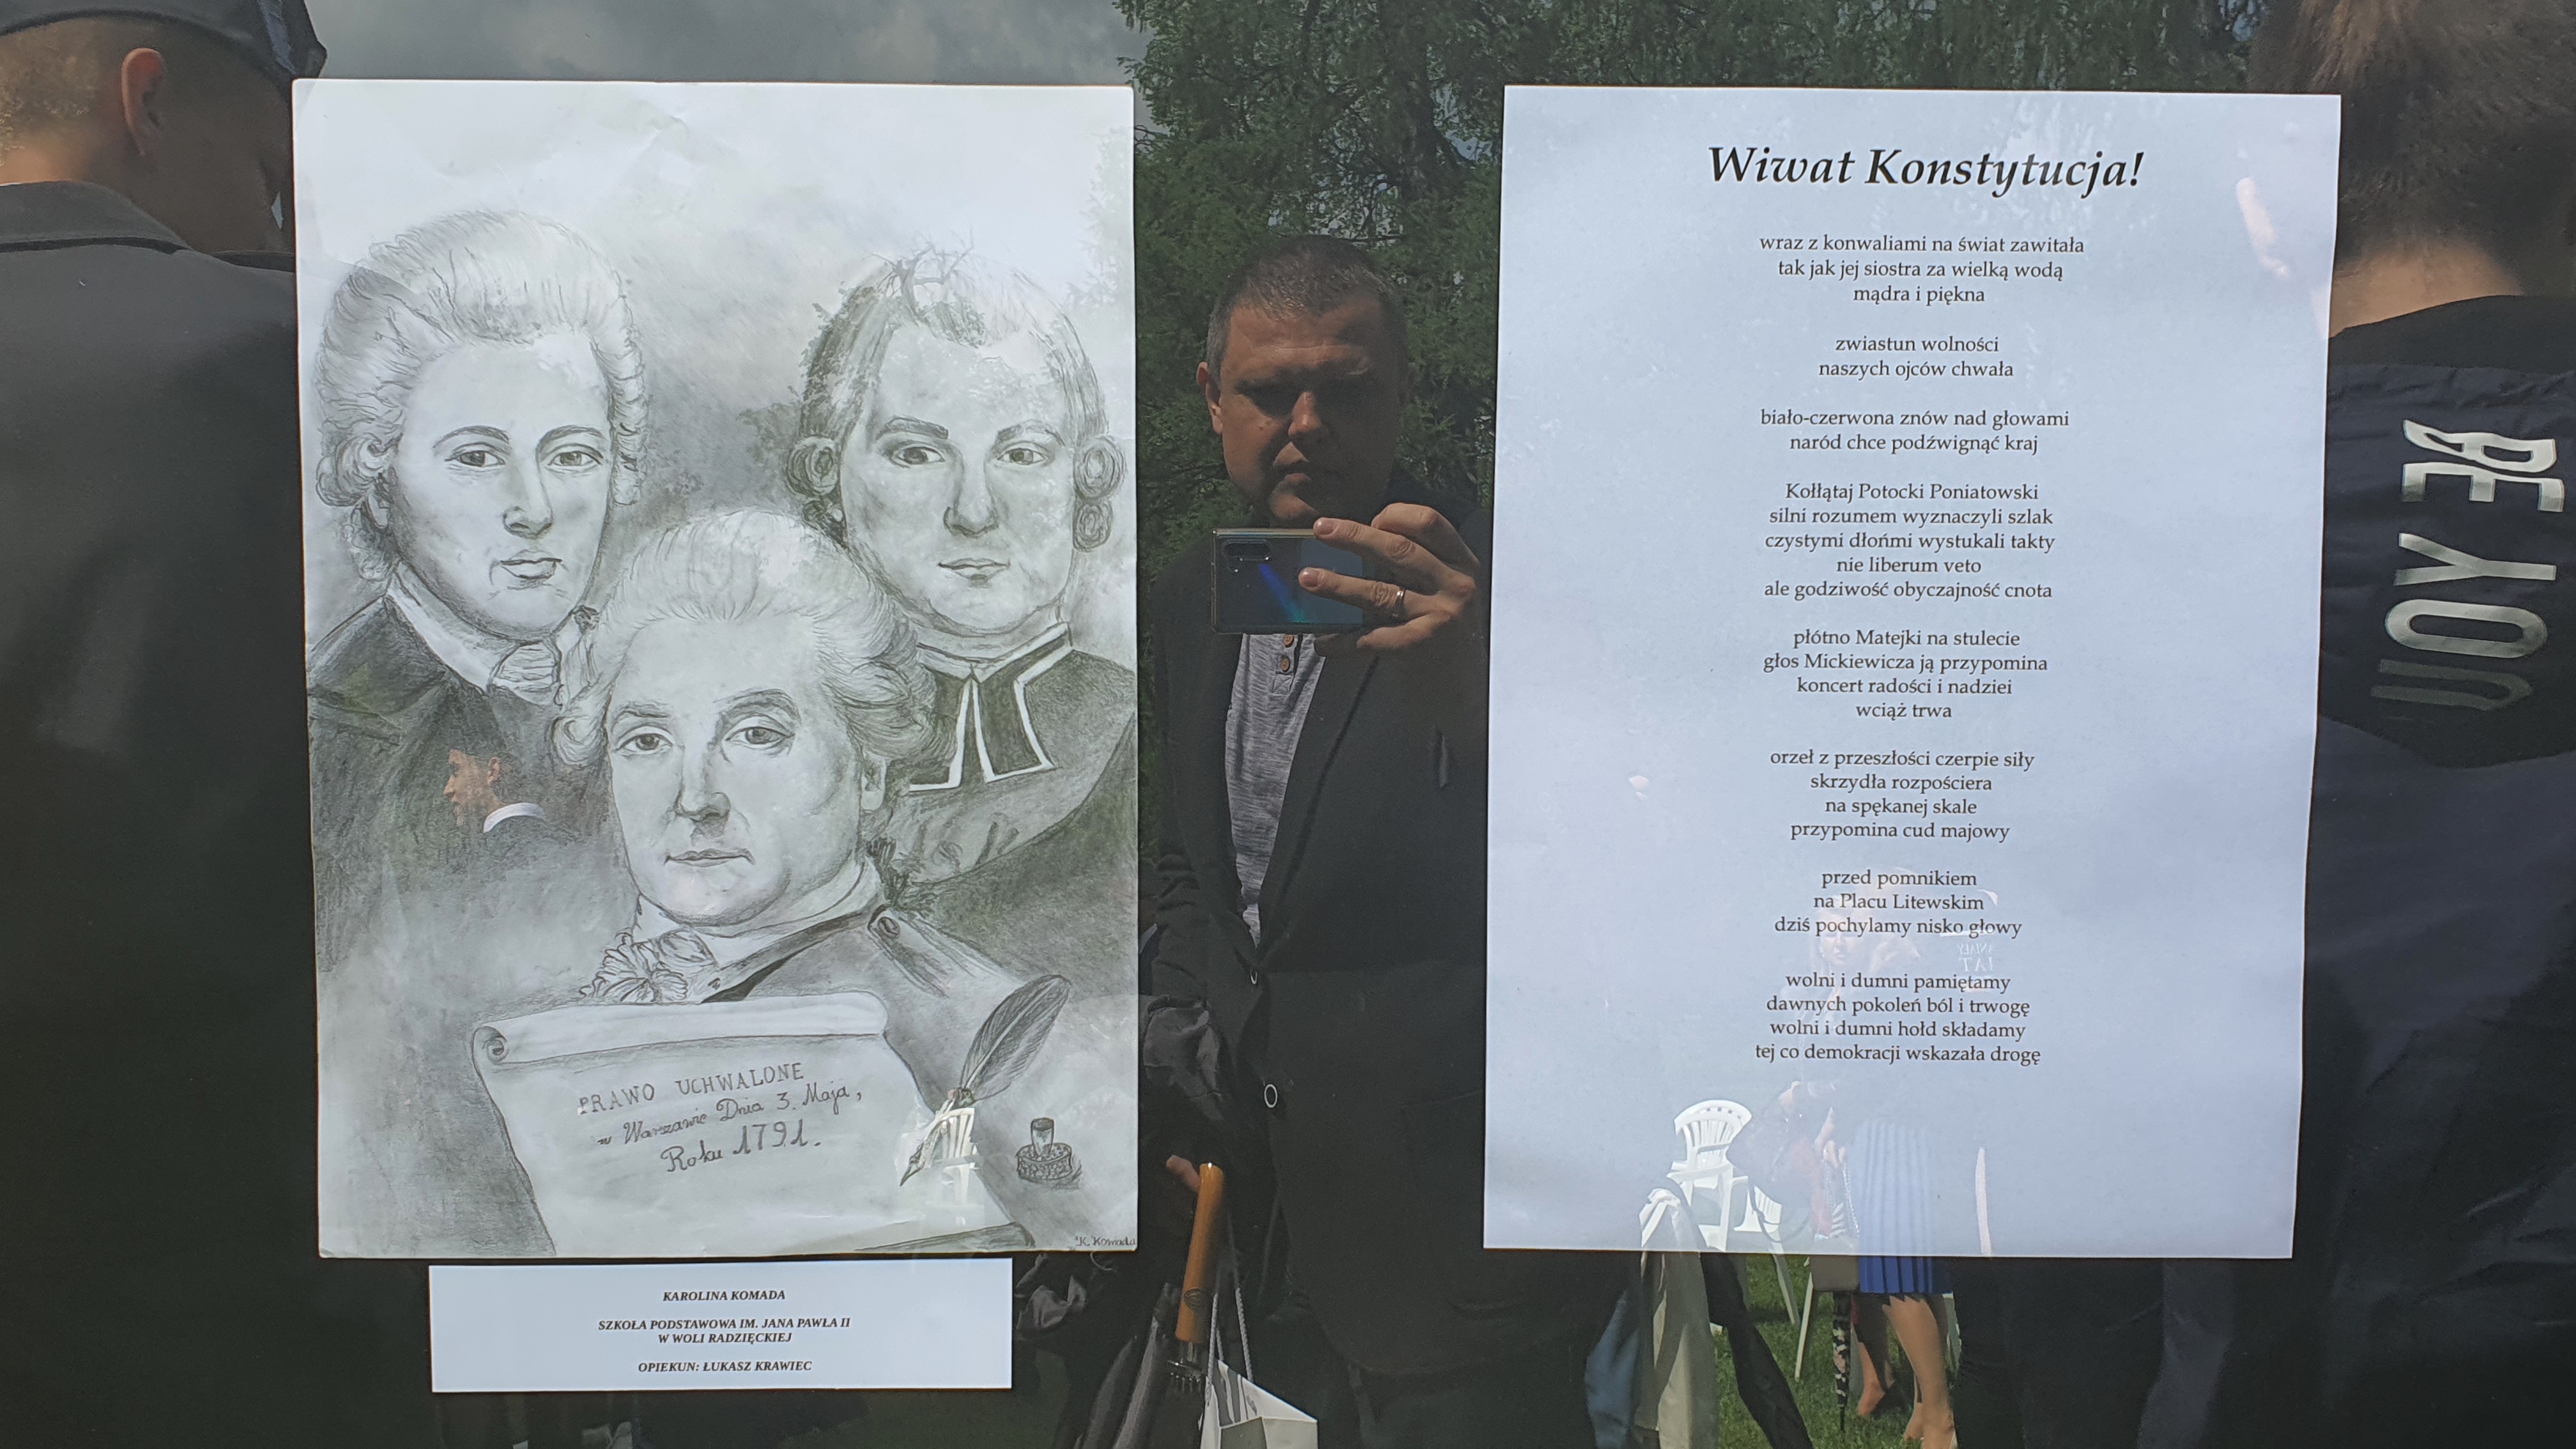 PRAWO UCHWALONE
w Warszawie Dnia 3. Maja,
Roku 1791.
K. Komada
KAROLINA KOMADA
SZKOŁA PODSTAWOWA IM. JANA PAWŁA II
W WOLI RADZIĘCKIEJ
OPIEKUN: ŁUKASZ KRAWIEC
Wiwat Konstytucja!
wraz z konwaliami na świat zawitała
tak jak jej siostra za wielką wodą
mądra i piękna
zwiastun wolności
naszych ojców chwała
biało-czerwona znów nad głowami
naród chce podźwignąć kraj
Kołłątaj Potocki Poniatowski
silni rozumem wyznaczyli szlak
czystymi dłońmi wystukali takty
nie liberum veto
ale godziwość obyczajność cnota
płótno Matejki na stulecie
głos Mickiewicza ją przypomina
koncert radości i nadziei
wciąż trwa
orzeł z przeszłości czerpie siły
skrzydła rozpościera
na spękanej skale
przypomina cud majowy
przed pomnikiem
na Placu Litewskim
dziś pochylamy nisko głowy
wolni i dumni pamiętamy
dawnych pokoleń ból i trwogę
wolni i dumni hołd składamy
tej co demokracji wskazała drogę
BE YOU